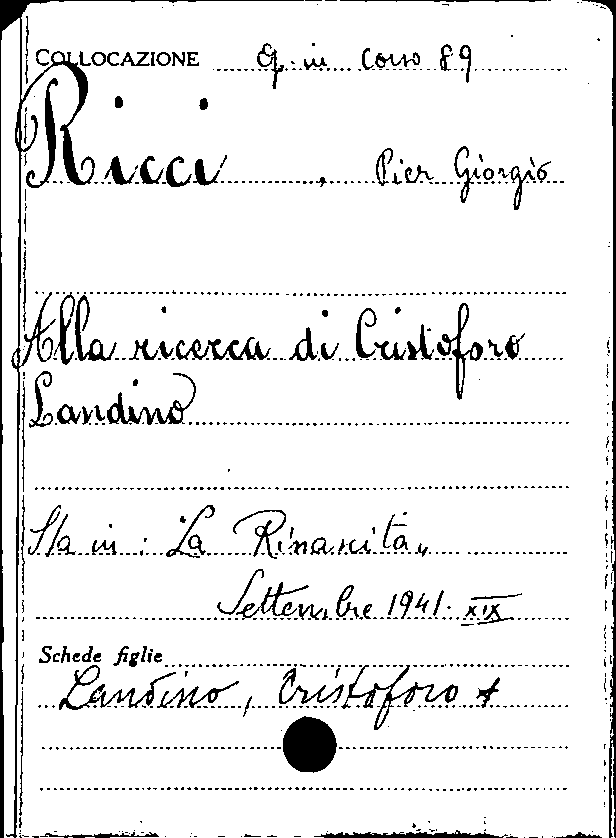 COLLOCAZIONE Op. in Corso 89
Ricci, Pier Giorgio
Alla ricerca di Cristoforo
Landino
Sta in: La Rinascita„
Settembre 1941. XIX
Schede figlie
Landino, Cristoforo